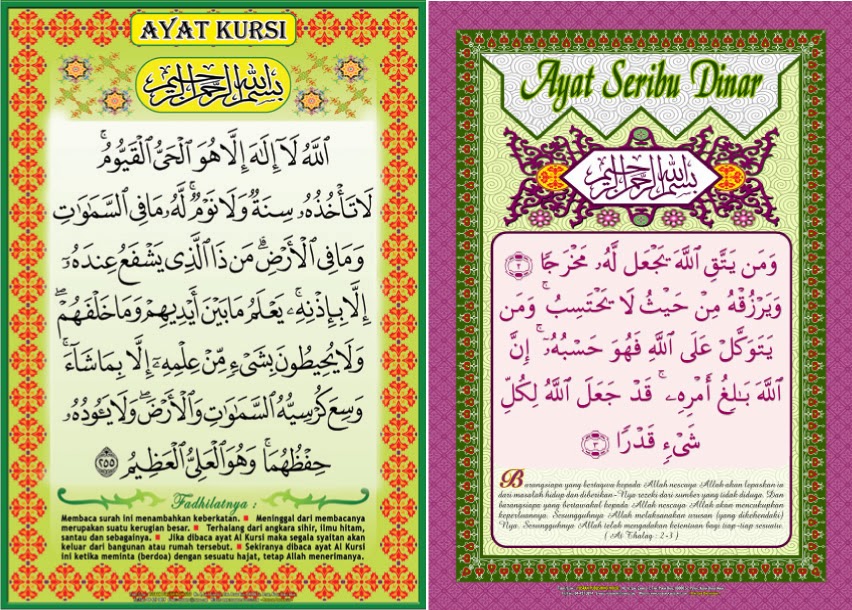 AYAT KURSI
بِسْمِ اللهِ الرَّحْمٰنِ الرَّحِيْمِ
ٱللَّهُ لَآ إِلَٰهَ إِلَّا هُوَ ٱلْحَىُّ ٱلْقَيُّومُ ۚ
لَا تَأْخُذُهُۥ سِنَةٌ وَلَا نَوْمٌ ۚ لَّهُۥ مَا فِى ٱلسَّمَٰوَٰتِ
وَمَا فِى ٱلْأَرْضِ ۗ مَن ذَا ٱلَّذِى يَشْفَعُ عِندَهُۥٓ
إِلَّا بِإِذْنِهِۦ ۚ يَعْلَمُ مَا بَيْنَ أَيْدِيهِمْ وَمَا خَلْفَهُمْ ۖ
وَلَا يُحِيطُونَ بِشَىْءٍ مِّنْ عِلْمِهِۦٓ إِلَّا بِمَا شَآءَ ۚ
وَسِعَ كُرْسِيُّهُ ٱلسَّمَٰوَٰتِ وَٱلْأَرْضَ ۖ وَلَا يَـُٔودُهُۥ
حِفْظُهُمَا ۚ وَهُوَ ٱلْعَلِىُّ ٱلْعَظِيمُ ٢٥٥
Fadhilatnya :
Membaca surah ini menambahkan keberkatan. ■ Meninggal dari membacanya
merupakan suatu kerugian besar. ■ Terhalang dari angkara sihir, ilmu hitam,
santau dan sebagainya. ■ Jika dibaca ayat Al Kursi maka segala syaitan akan
keluar dari bangunan atau rumah tersebut. ■ Sekiranya dibaca ayat Al Kursi
ini ketika meminta (berdoa) dengan sesuatu hajat, tetap Allah menerimanya.
Ayat Seribu Dinar
بِسْمِ اللهِ الرَّحْمٰنِ الرَّحِيْمِ
وَمَن يَتَّقِ ٱللَّهَ يَجْعَل لَّهُۥ مَخْرَجًا ٢
وَيَرْزُقْهُ مِنْ حَيْثُ لَا يَحْتَسِبُ ۚ وَمَن
يَتَوَكَّلْ عَلَى ٱللَّهِ فَهُوَ حَسْبُهُۥٓ ۚ إِنَّ
ٱللَّهَ بَٰلِغُ أَمْرِهِۦ ۚ قَدْ جَعَلَ ٱللَّهُ لِكُلِّ
شَىْءٍ قَدْرًا ٣
Barangsiapa yang bertaqwa kepada Allah nescaya Allah akan lepaskan ia
dari masalah hidup dan diberikan-Nya rezeki dari sumber yang tidak diduga. Dan
barangsiapa yang bertawakal kepada Allah nescaya Allah akan mencukupkan
keperluannya. Sesungguhnya Allah melaksanakan urusan (yang dikehendaki)
Nya. Sesungguhnya Allah telah mengadakan ketentuan bagi tiap-tiap sesuatu.
( At Thalaq : 2-3 )